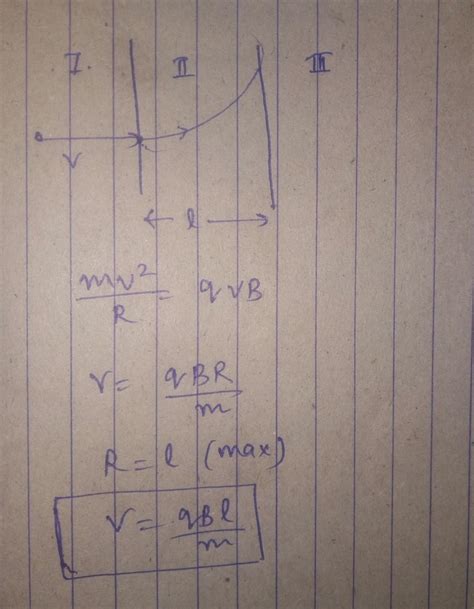 I. II III
v
← l →
mv²/R = qvB
v = qBR/m
R = l (max)
v = qBl/m